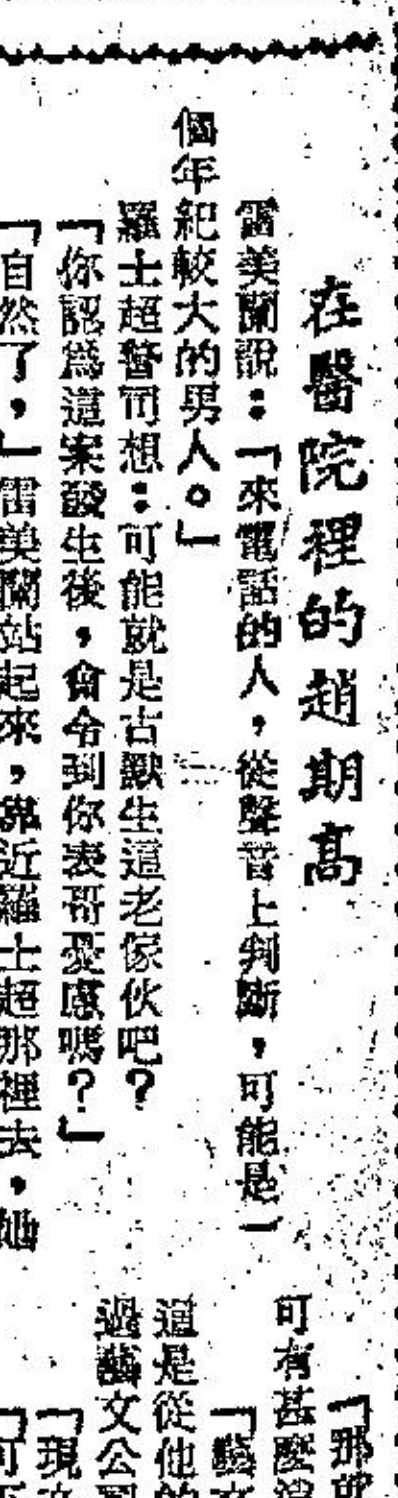 在醫院裡的趙期高
雷美蘭說：「來電話的人，從聲音上判斷，可能是一
個年紀較大的男人。」
羅士超警司想：可能就是古獸生這老傢伙吧？
「你認爲這案發生後，會令到你表哥憂慮嗎？」
「自然了，」雷美蘭站起來，靠近羅士超那裡去，她
「那
可有甚麼
「藝文
這是從他的
過藝文公司
「現
「可